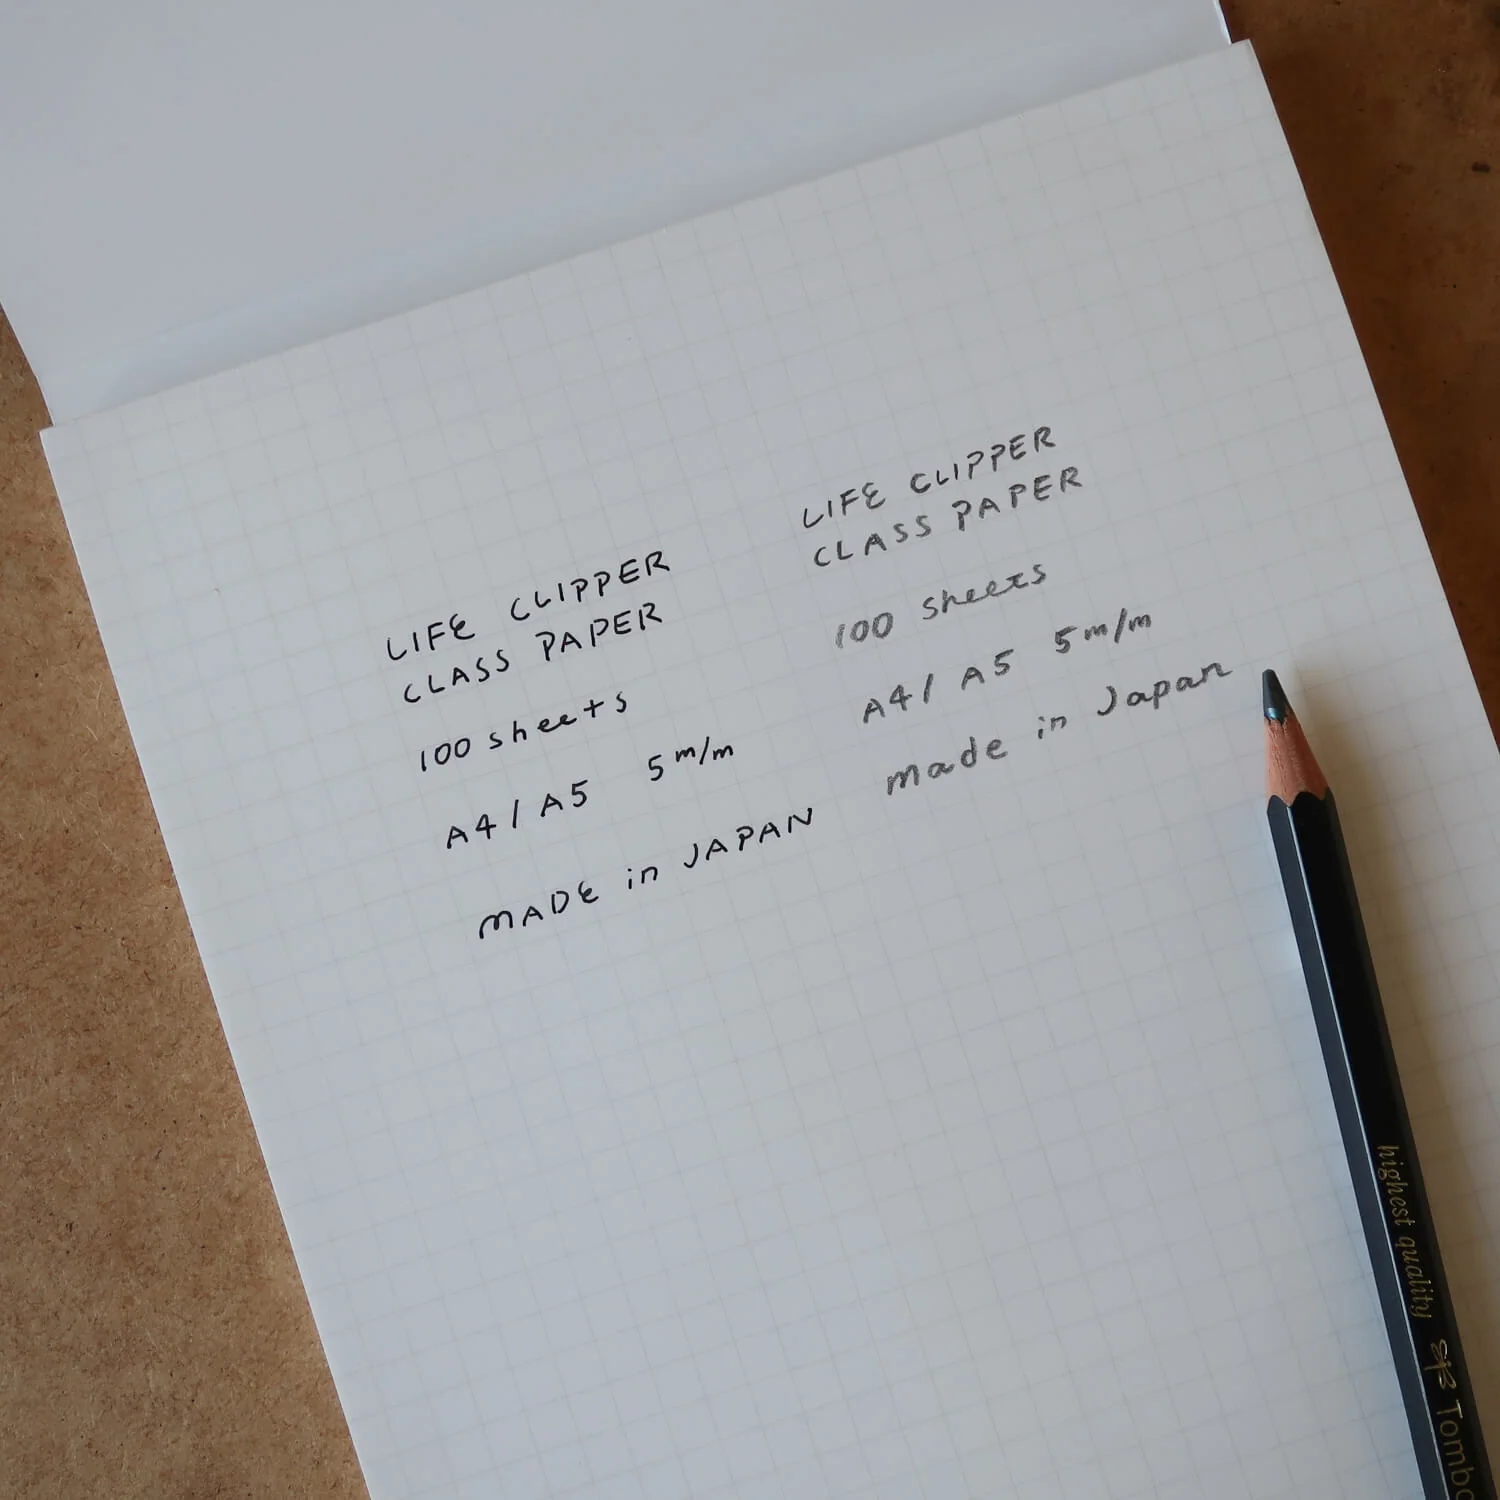 LIFE CLIPPER
CLASS PAPER
100 sheets
A4/A5 5m/m
MADE in JAPAN
LIFE CLIPPER
CLASS PAPER
100 sheets
A4/A5 5m/m
made in Japan
highest quality Tombo